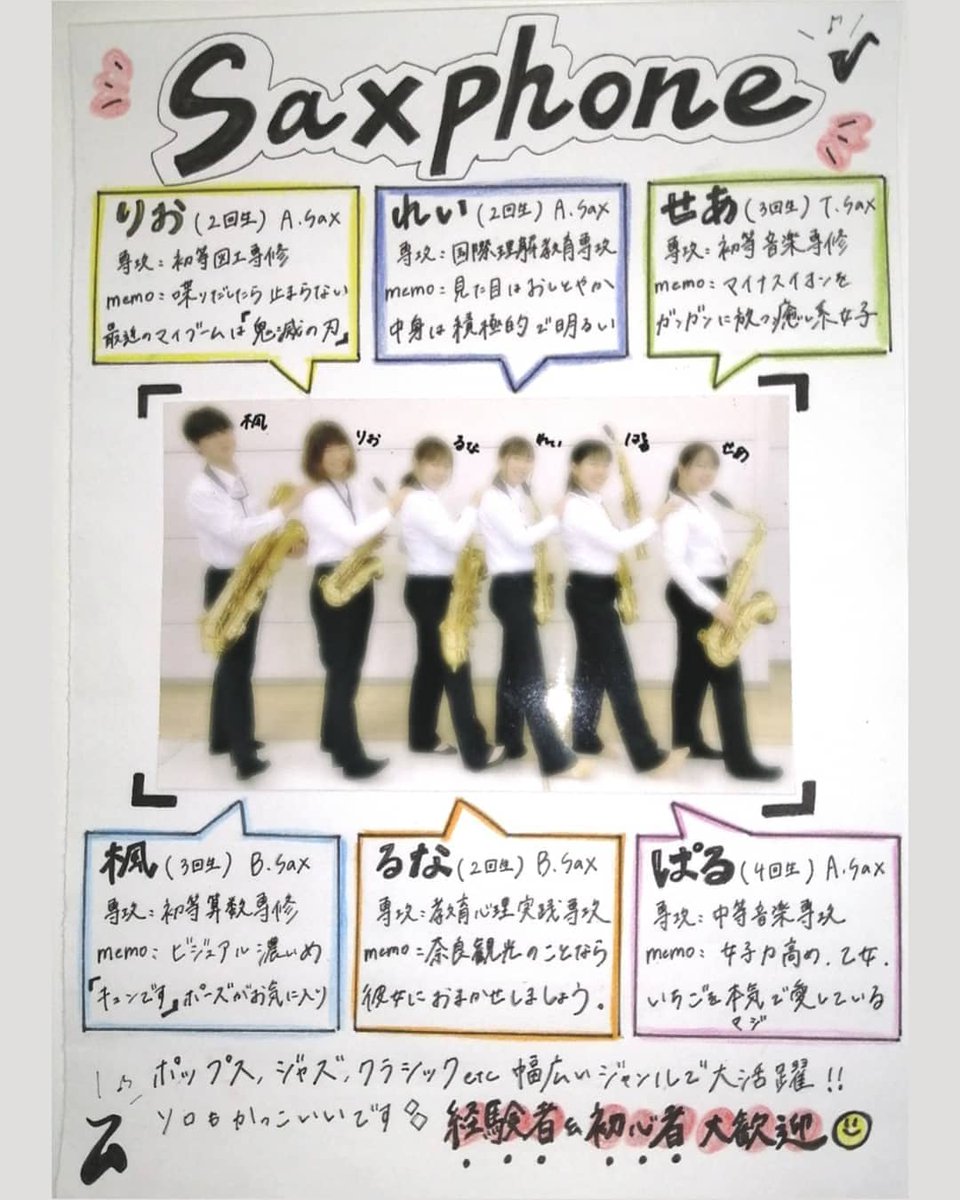 Saxphone
りお(2回生) A.Sax
専攻:初等図工専修
memo:喋りだしたら止まらない
最近のマイブームは『鬼滅の刃』
れい(2回生) A.Sax
専攻:国際理解教育専攻
memo:見た目はおしとやか
中身は積極的で明るい
せあ(3回生) T.Sax
専攻:初等音楽専修
memo:マイナスイオンを
ガンガンに放つ癒し系女子
楓
りお
るな
れい
ぱる
せあ
楓(3回生) B.Sax
専攻:初等算数専修
memo:ビジュアル濃いめ
「キュンです」ポーズがお気に入り
るな(2回生) B.Sax
専攻:教育心理実践専攻
memo:奈良観光のことなら
彼女におまかせしましょう。
ぱる(4回生) A.Sax
専攻:中等音楽専攻
memo:女子力高め.乙女.
いちごを本気で愛している
マジ
ポップス,ジャズ,クラシックetc 幅広いジャンルで大活躍!!
ソロもかっこいいです
経験者&初心者大歓迎